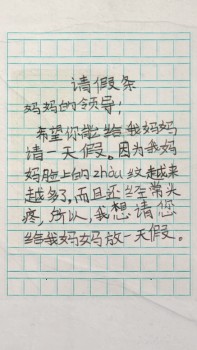 请假条
妈妈的领导:
希望你能给我妈妈
请一天假。因为我妈
妈脸上的zhòu纹越来
越多了,而且还经常头
疼,所以,我想请您
给我妈妈放一天假。